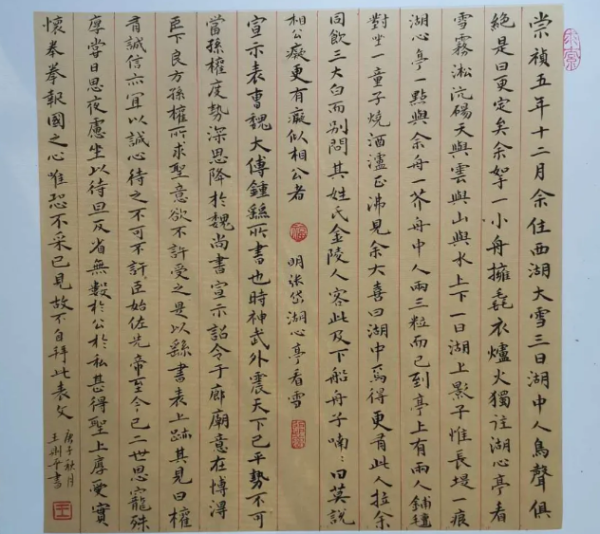 崇禎五年十二月余住西湖大雪三日湖中人鳥聲俱
絕是日更定矣余拏一小舟擁毳衣爐火獨往湖心亭看
雪霧淞沆碭天與雲與山與水上下一白湖上影子惟長堤一痕
湖心亭一點與余舟一芥舟中人兩三粒而已到亭上有兩人鋪氈
對坐一童子燒酒爐正沸見余大喜曰湖中焉得更有此人拉余
同飲三大白而別問其姓氏金陵人客此及下船舟子喃〻曰莫說
相公癡更有癡似相公者 明張岱湖心亭看雪
宣示表曹魏大傅鍾繇所書也時神武外震天下已平勢不可
當孫權度勢深思降於魏尚書宣示詔令于廊廟意在博得
臣下良方孫權所求聖意欲不許受之是以繇書表上疏其見曰權
有誠信亦宜以誠心待之不可不許臣始佐先帝至今已二世思寵殊
厚嘗日思夜慮坐以待旦反省無數於公於私甚得聖上厚愛實
懷拳拳報國之心唯恐不采已見故不自拜此表文
庚子秋月
王 書
王